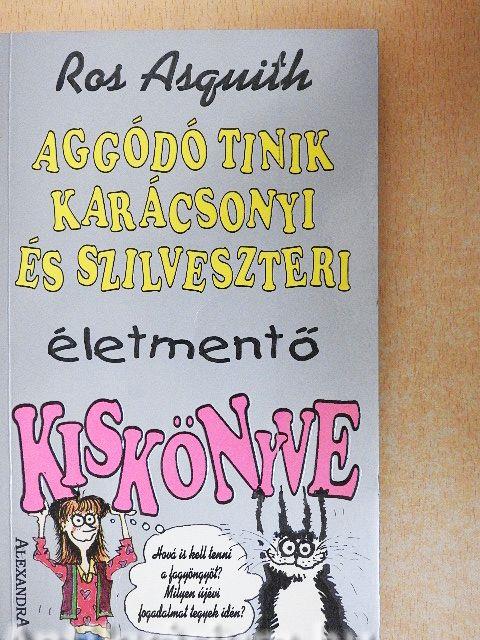 Ros Asquith
AGGÓDÓ TINIK
KARÁCSONYI
ÉS SZILVESZTERI
életmentő
KISKÖNYVE
Hová is kell tenni
a fagyöngyöt?
Milyen újévi
fogadalmat tegyek idén?
ALEXANDRA